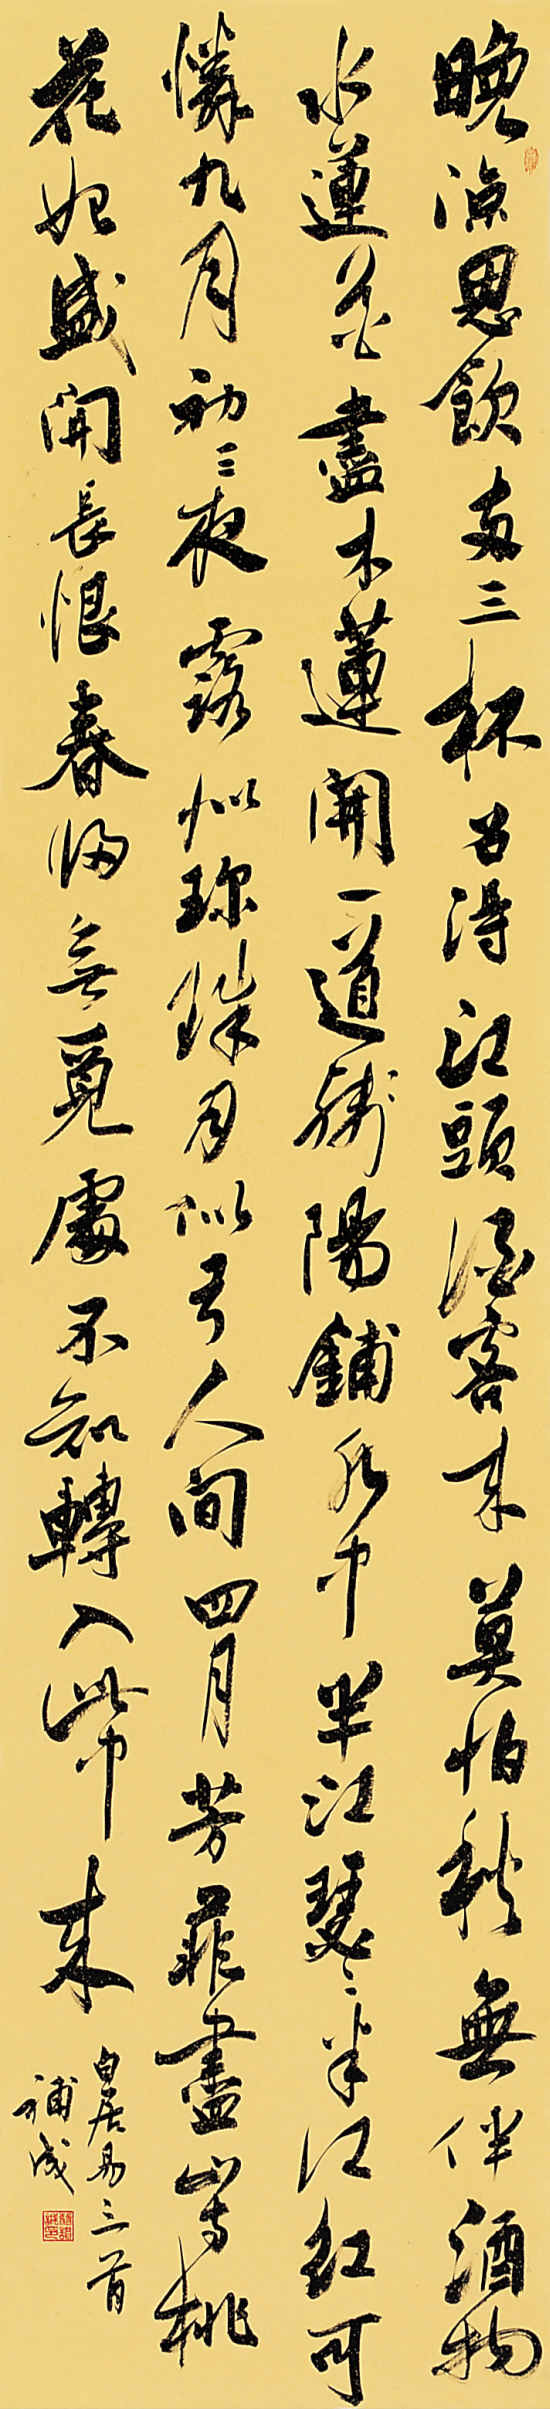 晚涼思飲兩三杯召得江頭酒客來莫怕秋無伴酒物
水蓮花盡木蓮開一道殘陽鋪水中半江瑟々半江紅可
憐九月初三夜露似珍珠月似弓人間四月芳菲盡山寺桃
花始盛開長恨春歸無覓處不知轉入此中來
白居易三首
補成